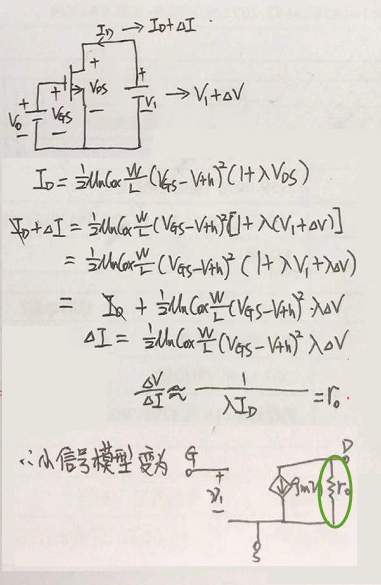 I_D → I_D+ΔI
+ + +
V_0 V_GS V_DS V_1 → V_1+ΔV
− − −
I_D = ½ μnCox W/L (V_GS−V_th)² (1+λV_DS)
I_D+ΔI = ½ μnCox W/L (V_GS−V_th)² [1+λ(V_1+ΔV)]
= ½ μnCox W/L (V_GS−V_th)² (1+λV_1+λΔV)
= I_D + ½ μnCox W/L (V_GS−V_th)² λΔV
ΔI = ½ μnCox W/L (V_GS−V_th)² λΔV
ΔV/ΔI ≈ 1/(λI_D) = r_o
∴小信号模型变为 G + V_1 − gmV_1 r_o D
S